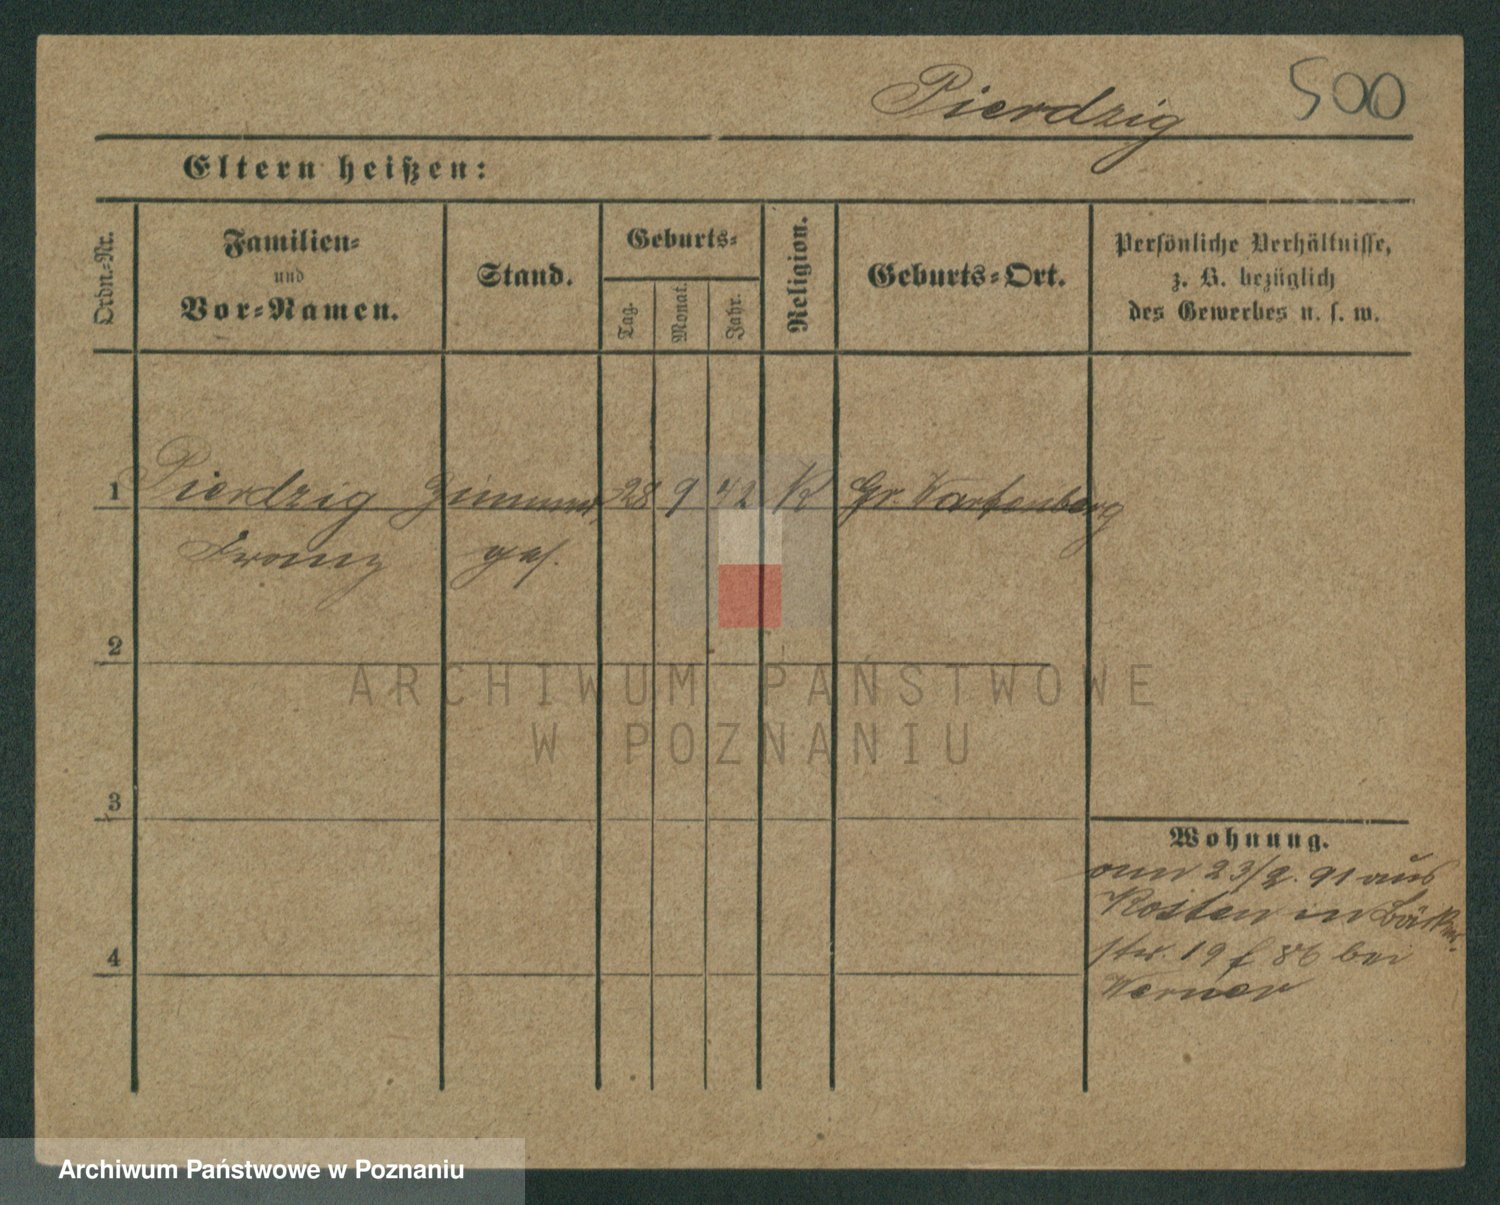 Pierdzig 500
Eltern heißen:
Ordn.-Nr.
Familien-
und
Vor-Namen.
Stand.
Geburts-
Tag.
Monat.
Jahr.
Religion.
Geburts-Ort.
Persönliche Verhältnisse,
z. B. bezüglich
des Gewerbes u. s. w.
1 Pierdzig Zimmer 28 9 42 K Gr. Wartenberg
Franz ges.
2
ARCHIWUM PAŃSTWOWE
W POZNANIU
3
Wohnung.
23/2. 91 aus
Kosten in Bäck
str. 19 f 86 bei
Werner
4
Archiwum Państwowe w Poznaniu